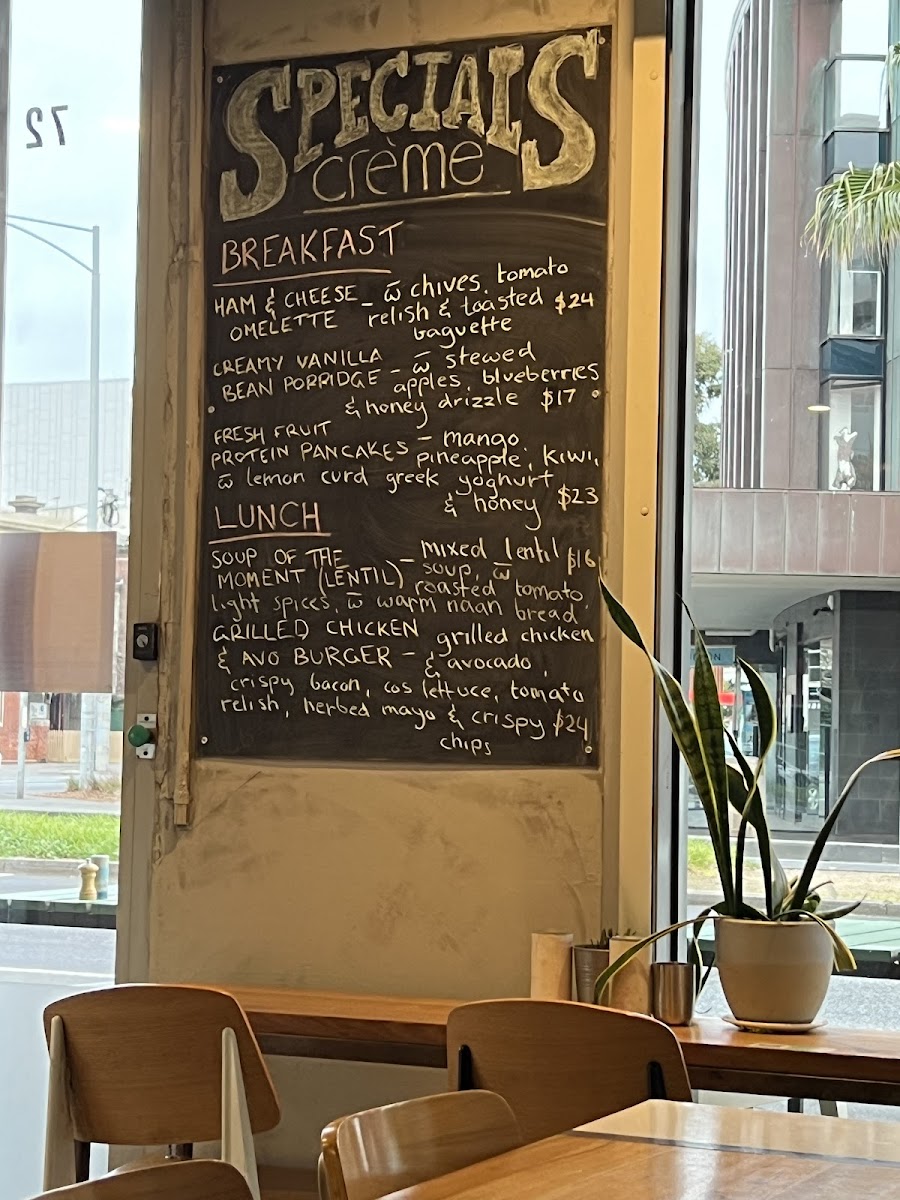 72
SPECIALS
crème
BREAKFAST
HAM & CHEESE - w̅ chives, tomato
OMELETTE relish & toasted $24
baguette
CREAMY VANILLA - w̅ stewed
BEAN PORRIDGE apples, blueberries
& honey drizzle $17
FRESH FRUIT
PROTEIN PANCAKES - mango
pineapple, kiwi,
w̅ lemon curd greek yoghurt
& honey $23
LUNCH
SOUP OF THE - mixed lentil $16
MOMENT (LENTIL) soup, w̅
roasted tomato,
light spices, w̅ warm naan bread
GRILLED CHICKEN grilled chicken
& AVO BURGER - & avocado,
crispy bacon, cos lettuce, tomato
relish, herbed mayo & crispy $24
chips